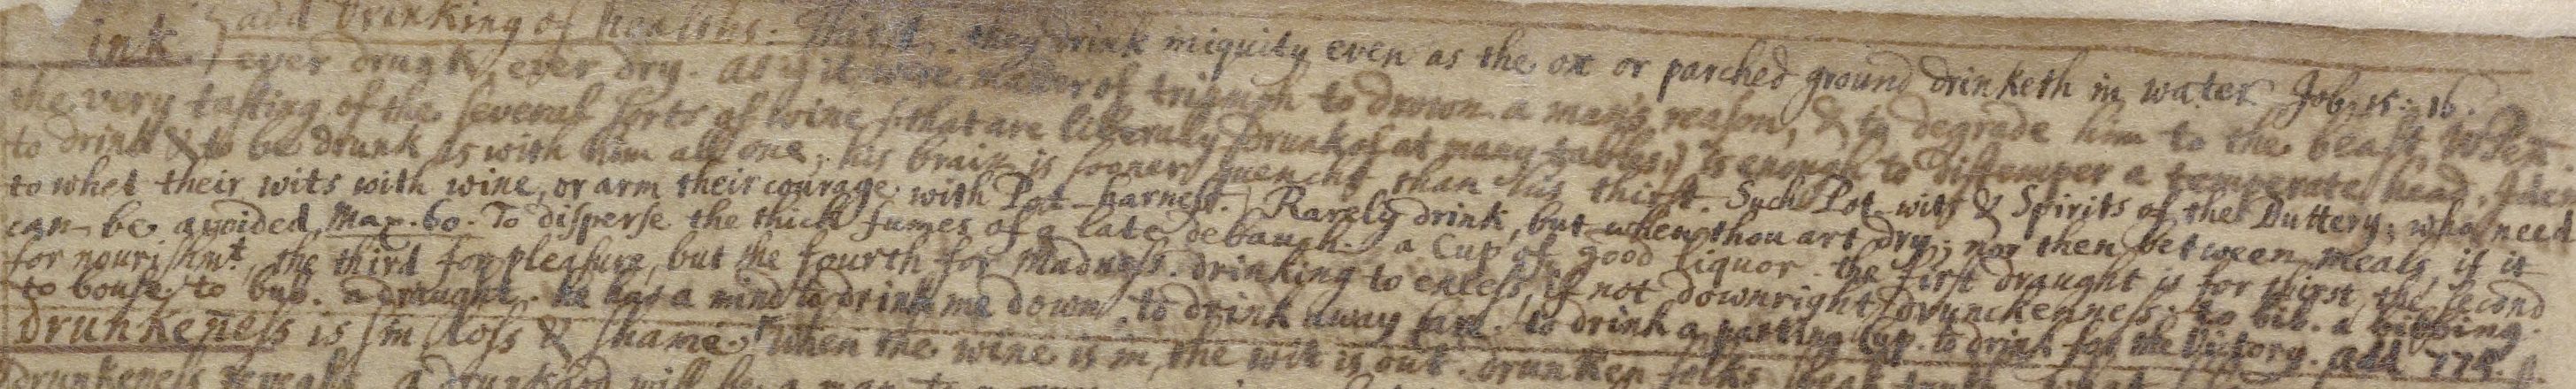 ink } add Drinking of healths. Thirst. they drink iniquity even as the ox or parched ground drinketh in water Job. 15: 16.
ever drunk, ever dry. as if it were matter of triumph to drown a man's reason, & to degrade him to the beast. When
the very tasting of the several sorts of wine (that are liberally drunk of at many tables) is enough to distemper a temperate head.
to drink & to be drunk is with him all one; his brain is sooner quencht than his thirst. Such Pot-wits & Spirits of the Buttery; who need
to whet their wits with wine, or arm their courage with Pot-harness. Rarely drink, but when thou art dry; nor then between meals, if it
can be avoided, Max. 60. To disperse the thick fumes of a late debauch. a Cup of good liquor. the first draught is for thirst, the second
for nourishmt, the third for pleasure, but the fourth for Madness. drinking to excess, if not downright drunckenness. to bib. a bibbing.
to bouse, to bub. a draught. he has a mind to drink me down. to drink away care. to drink a parting Cup. to drink for the Victory. add 775.
Drunkeness is sin loss & shame. When the wine is in, the wit is out. drunken folks speak truth
Drunkeness reveals a drunkard will be a man